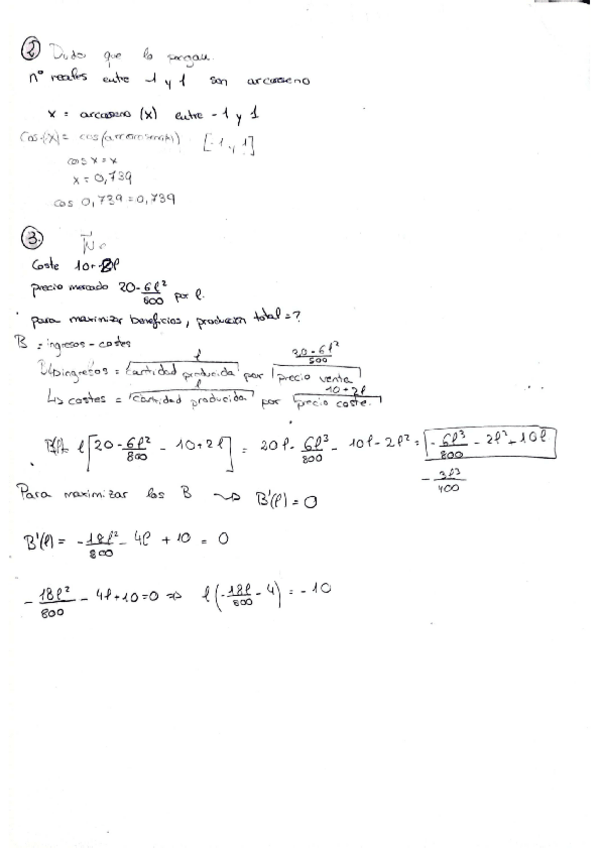 ② Duda que lo pongau.
nº reales entre -1 y 1 son arcoseno
x = arcoseno (x) entre -1 y 1
[-1 y 1]
cos x = x
x = 0,739
cos 0,739 = 0,739
③.
Coste 10+2l
precio mercado 20-6l²/800 por l.
para maximizar beneficios, producción total = ?
B = ingresos - costes
↳ ingresos = cantidad producida (l) por precio venta (20-6l²/500)
↳ costes = cantidad producida (l) por precio coste. (10+2l)
l[20-6l²/800 - 10+2l] = 20l - 6l³/800 - 10l - 2l² = -6l³/800 - 2l² + 10l
-3l³/400
Para maximizar los B ⇝ B'(l) = 0
B'(l) = -18l²/800 - 4l + 10 = 0
-18l²/800 - 4l + 10 = 0 ⇒ l(-18l/800 - 4) = -10